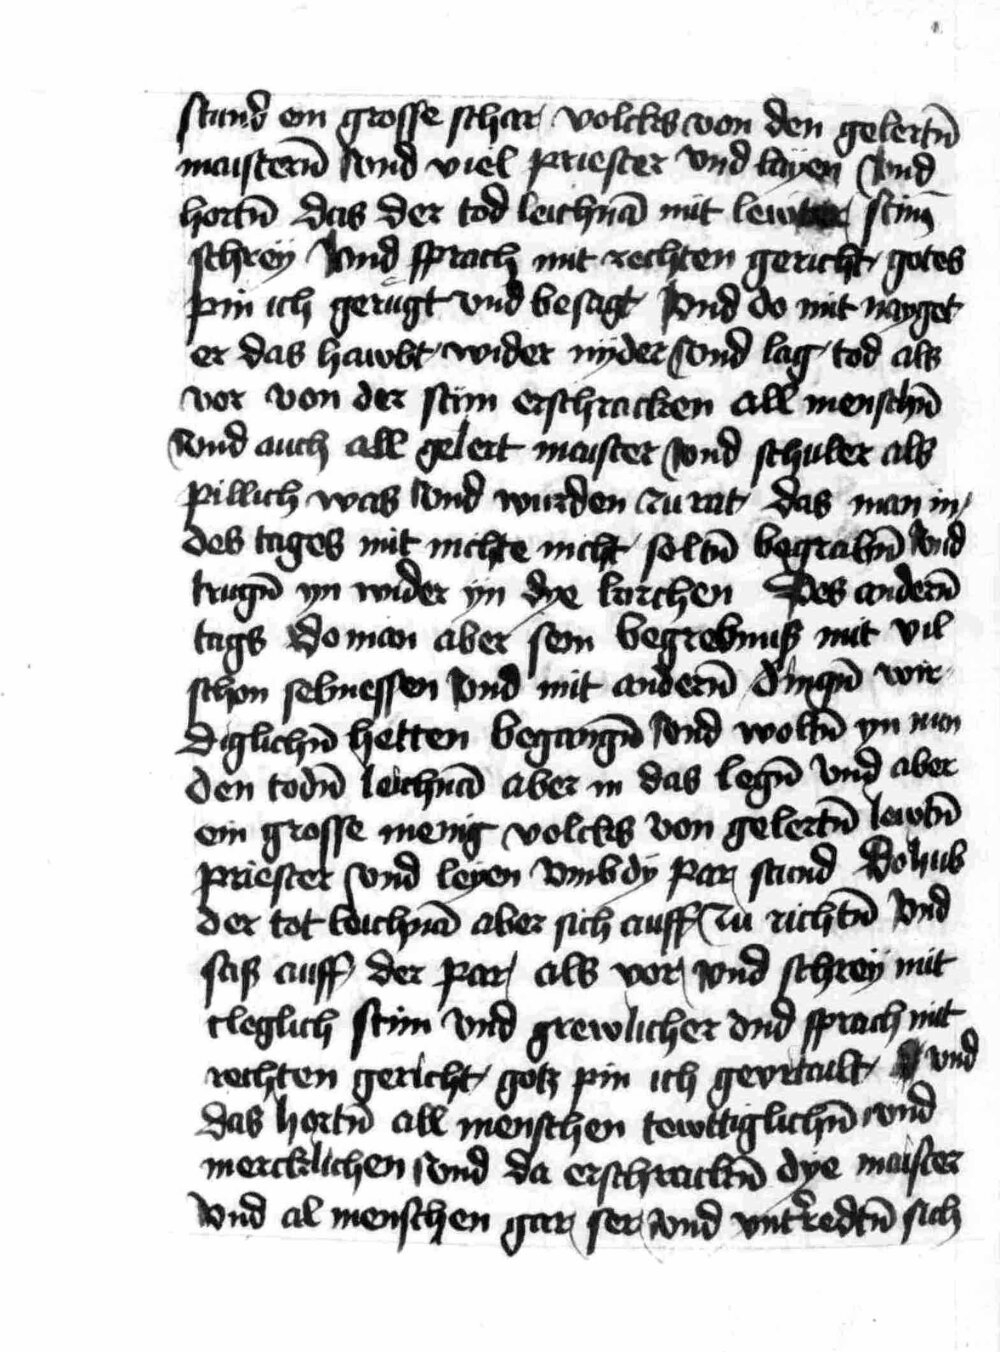 stund ein grosse schar volcks von den gelertn̄
maistern̄ vnd viel priester vnd layen vnd
hortn̄ das der tod leichnā mit lewter stim̄
schrey vnd sprach mit rechten gericht gotes
pin ich gerugt vnd besagt vnd do mit nayget
er das hawbt wider nyder vnd lag tod als
vor von der stim erschracken all menschn̄
vnd auch all gelert maister vnd schuler als
pillich was vnd wurden zu rat das man in
des tages mit nichte nicht soltn̄ begrabn̄ vnd
trugn̄ yn wider yn dye kirchen Des andern̄
tags do man aber sein begrebnuß mit vil
schon selmessen vnd mit andern̄ dingn̄ wir
diglichn̄ hetten begangn̄ vnd woltn̄ yn nun
den todn̄ leichnā aber in das legn̄ vnd aber
ein grosse menig volcks von gelertn̄ lewtn̄
priester vnd leyen vmb dy par stund Do hub
der tot leichnā aber sich auff zu richtn̄ vnd
saß auff der par als vor vnd schrey mit
cleglich stim vnd grewlicher vnd sprach mit
rechten gericht gotz pin ich gevrtailt vnd
das hortn̄ all menschen tewttiglichn̄ vnd
mercklichen vnd da erschrackn̄ dye maister
vnd al menschen gar ser vnd vnt'redtn̄ sich